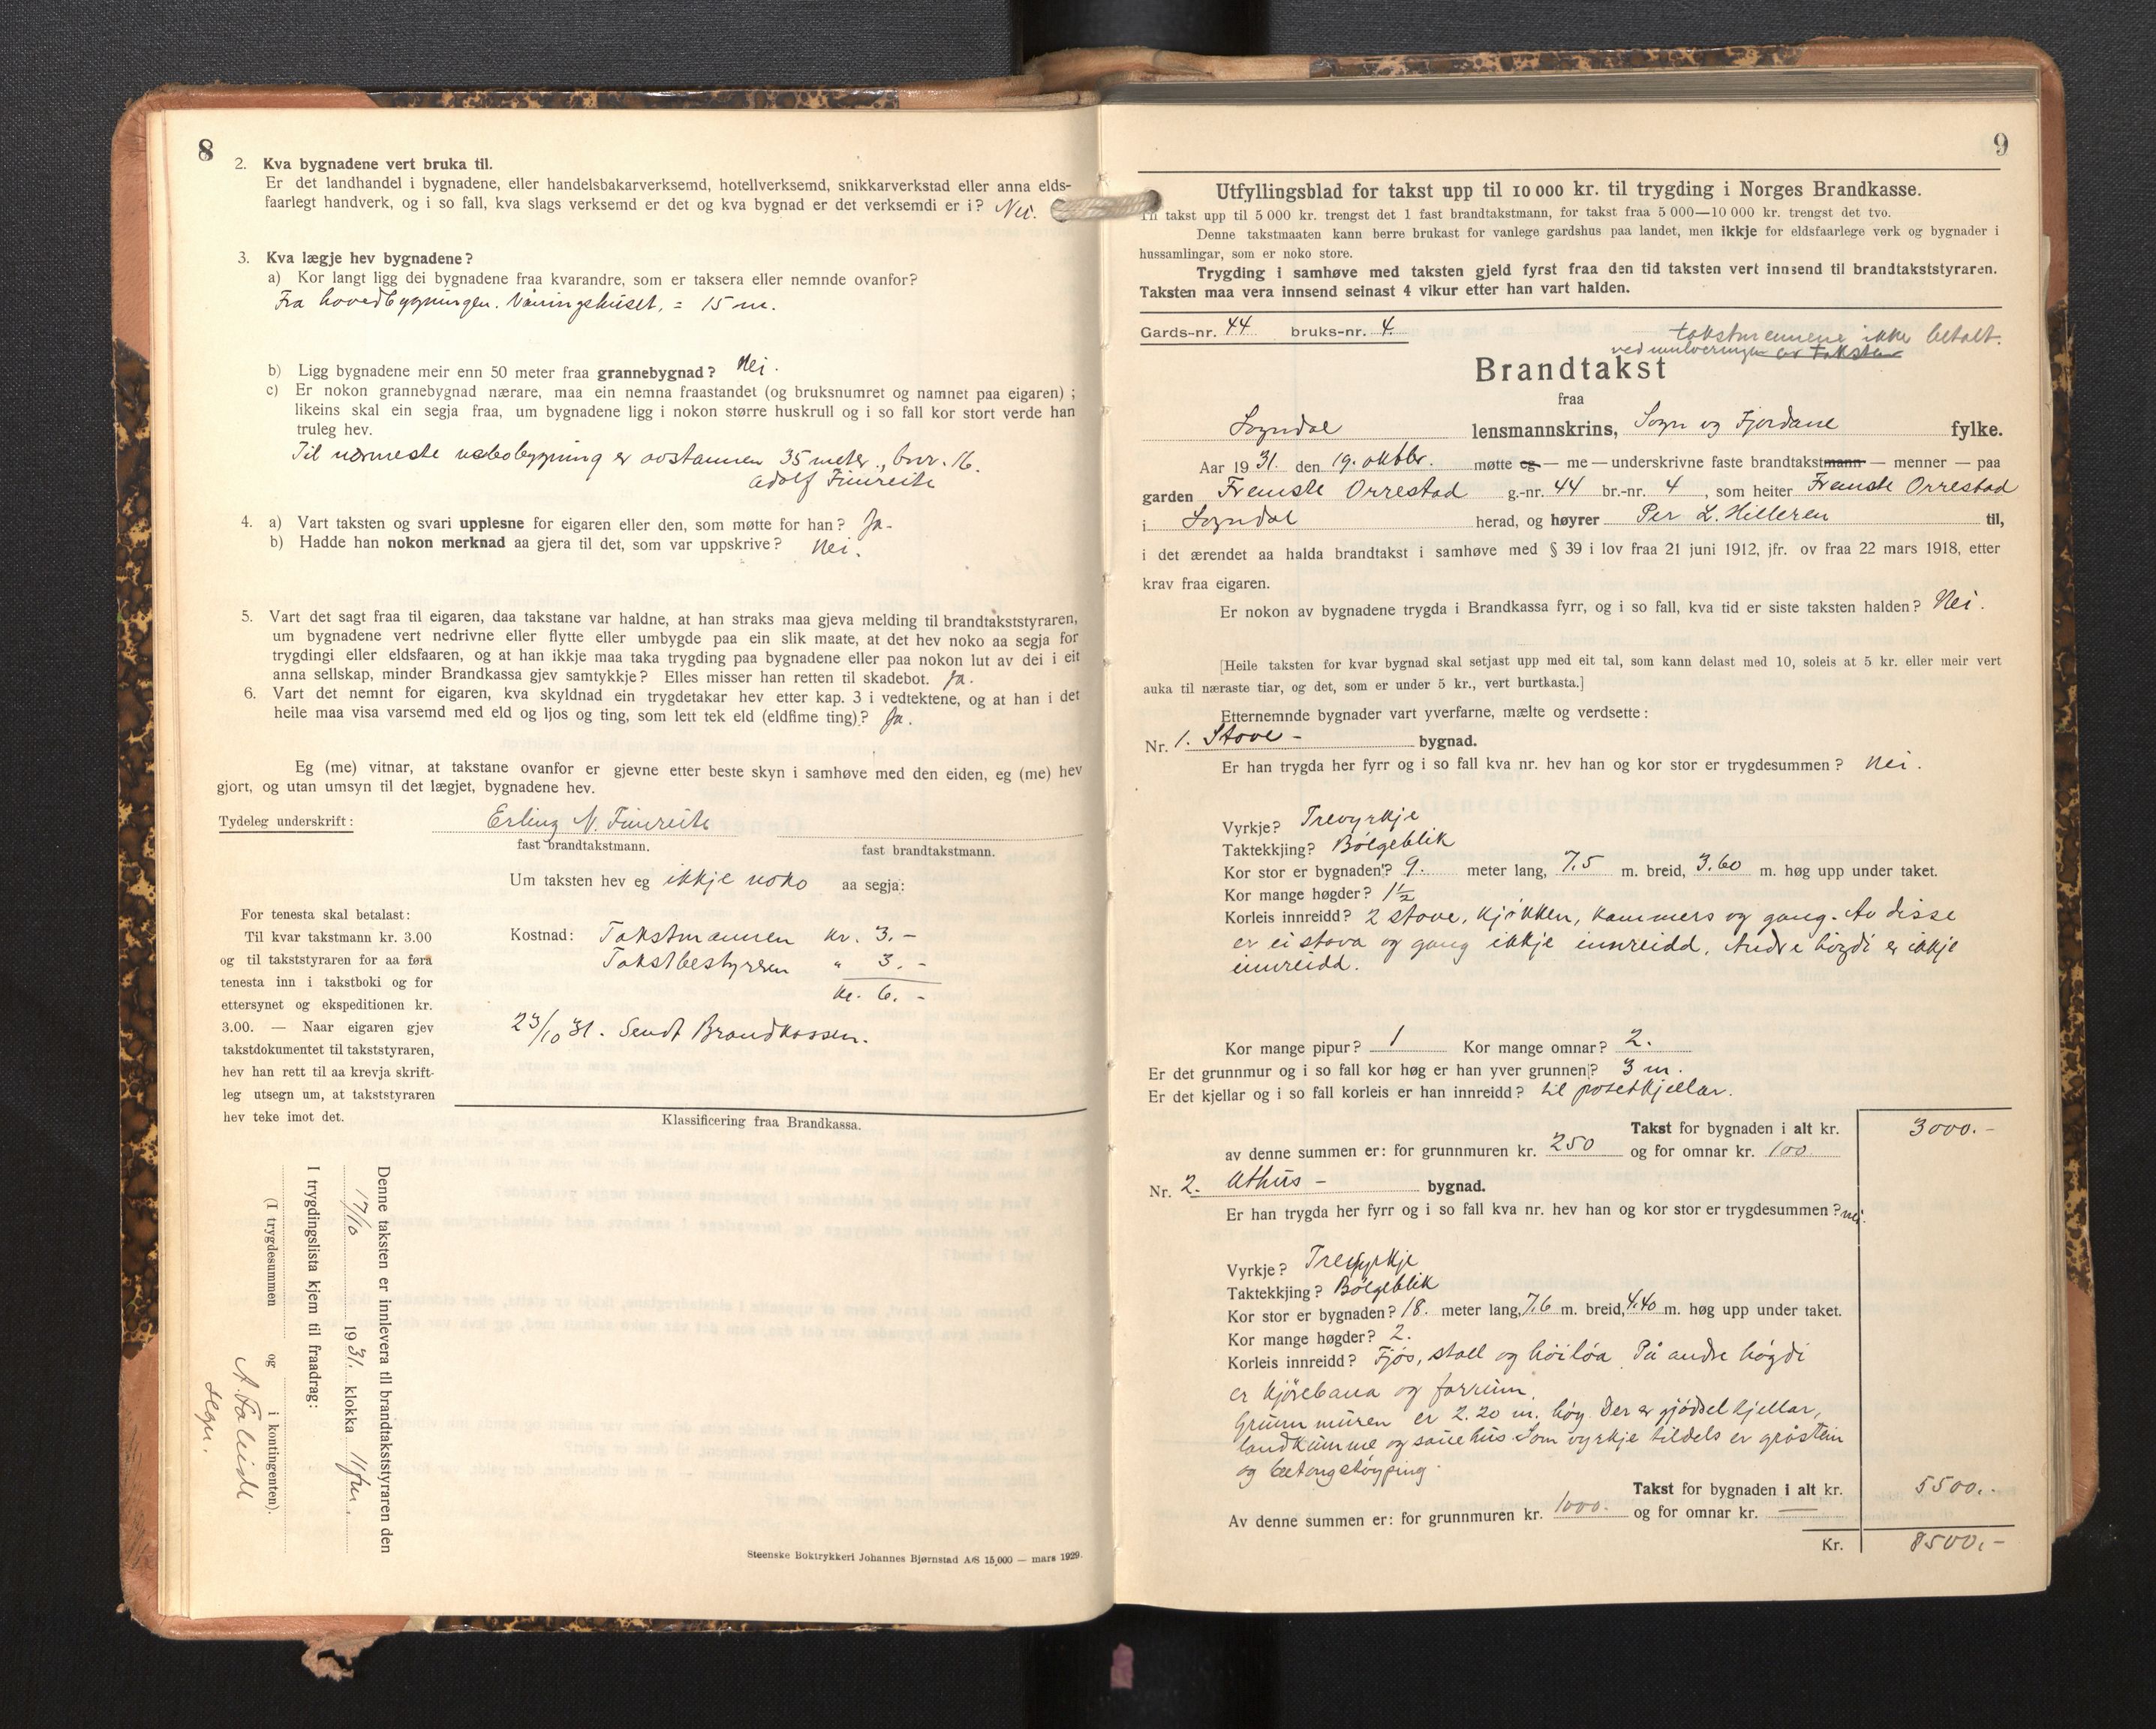 8
2. Kva bygnadene vert bruka til.
Er det landhandel i bygnadene, eller handelsbakarverksemd, hotellverksemd, snikkarverkstad eller anna elds-
faarlegt handverk, og i so fall, kva slags verksemd er det og kva bygnad er det verksemdi er i? Nei.
3. Kva lægje hev bygnadene?
a) Kor langt ligg dei bygnadene fraa kvarandre, som er taksera eller nemnde ovanfor?
Fra hovedbygningen. Våningshuset. = 15 m.
b) Ligg bygnadene meir enn 50 meter fraa grannebygnad? Nei.
c) Er nokon grannebygnad nærare, maa ein nemna fraastandet (og bruksnumret og namnet paa eigaren);
likeins skal ein segja fraa, um bygnadene ligg i nokon større huskrull og i so fall kor stort verde han
truleg hev.
Til nærmeste nabobygning er avstannen 35 meter., bnr. 16.
Adolf Finreite
4. a) Vart taksten og svari upplesne for eigaren eller den, som møtte for han? Ja.
b) Hadde han nokon merknad aa gjera til det, som var uppskrive? Nei.
5. Vart det sagt fraa til eigaren, daa takstane var haldne, at han straks maa gjeva melding til brandtakststyraren,
um bygnadene vert nedrivne eller flytte eller umbygde paa ein slik maate, at det hev noko aa segja for
trygdingi eller eldsfaaren, og at han ikkje maa taka trygding paa bygnadene eller paa nokon lut av dei i eit
anna sellskap, minder Brandkassa gjev samtykkje? Elles misser han retten til skadebot. Ja.
6. Vart det nemnt for eigaren, kva skyldnad ein trygdetakar hev etter kap. 3 i vedtektene, og at han i det
heile maa visa varsemd med eld og ljos og ting, som lett tek eld (eldfime ting)? Ja.
Eg (me) vitnar, at takstane ovanfor er gjevne etter beste skyn i samhøve med den eiden, eg (me) hev
gjort, og utan umsyn til det lægjet, bygnadene hev.
Tydeleg underskrift: Erling N. Finreite
fast brandtakstmann. fast brandtakstmann.
Um taksten hev eg ikkje noko aa segja:
For tenesta skal betalast:
Til kvar takstmann kr. 3.00
og til takststyraren for aa føra
tenesta inn i takstboki og for
ettersynet og ekspeditionen kr.
3.00. — Naar eigaren gjev
takstdokumentet til takststyraren,
hev han rett til aa krevja skrift-
leg utsegn um, at takststyraren
hev teke imot det.
Kostnad: Takstmannen kr. 3.-
Takstbestyreren " 3.-
kr. 6.-
23/10 31. Sendt Brandkassen.
Klassificering fraa Brandkassa.
Denne taksten er innlevera til brandtakststyraren den
17/10 1931. klokka 11 fm.
I trygdingslista kjem til fraadrag:
(I trygdesummen og i kontingenten).
Steenske Boktrykkeri Johannes Bjørnstad A/S 15,000 — mars 1929.
9
Utfyllingsblad for takst upp til 10 000 kr. til trygding i Norges Brandkasse.
Til takst upp til 5 000 kr. trengst det 1 fast brandtakstmann, for takst fraa 5 000—10 000 kr. trengst det tvo.
Denne takstmaaten kann berre brukast for vanlege gardshus paa landet, men ikkje for eldsfaarlege verk og bygnader i
hussamlingar, som er noko store.
Trygding i samhøve med taksten gjeld fyrst fraa den tid taksten vert innsend til brandtakststyraren.
Taksten maa vera innsend seinast 4 vikur etter han vart halden.
Gards-nr. 44 bruks-nr. 4.
takstmennene ikke betalt.
ved innleveringen av taksten
Brandtakst
fraa
Sogndal lensmannskrins, Sogn og Fjordane fylke.
Aar 1931. den 19. oktbr. møtte eg — me — underskrivne faste brandtakstmann — menner — paa
garden Fremste Orrestad g.-nr. 44 br.-nr. 4, som heiter Fremste Orrestad
i Sogndal herad, og høyrer Per L. Hilleren til,
i det ærendet aa halda brandtakst i samhøve med § 39 i lov fraa 21 juni 1912, jfr. ov fraa 22 mars 1918, etter
krav fraa eigaren.
Er nokon av bygnadene trygda i Brandkassa fyrr, og i so fall, kva tid er siste taksten halden? Nei.
[Heile taksten for kvar bygnad skal setjast upp med eit tal, som kann delast med 10, soleis at 5 kr. eller meir vert
auka til næraste tiar, og det, som er under 5 kr., vert burtkasta.]
Etternemnde bygnader vart yverfarne, mælte og verdsette:
Nr. 1. Stove- bygnad.
Er han trygda her fyrr og i so fall kva nr. hev han og kor stor er trygdesummen? Nei.
Vyrkje? Trevyrkje
Taktekkjing? Bölgeblik
Kor stor er bygnaden? 9. meter lang, 7.5 m. breid, 3.60 m. høg upp under taket.
Kor mange høgder? 1½
Korleis innreidd? 2 stove, kjökken, kammers og gang. Av disse
er ei stova og gang ikkje innreidd. Andre högdi er ikkje
innreidd.
Kor mange pipur? 1 Kor mange omnar? 2.
Er det grunnmur og i so fall kor høg er han yver grunnen? 3 m.
Er det kjellar og i so fall korleis er han innreidd? til potetkjellar.
Takst for bygnaden i alt kr. 3000.-
av denne summen er: for grunnmuren kr. 250 og for omnar kr. 100
Nr. 2. Uthus- bygnad.
Er han trygda her fyrr og i so fall kva nr. hev han og kor stor er trygdesummen? nei.
Vyrkje? Trevyrkje
Taktekkjing? Bölgeblik
Kor stor er bygnaden? 18. meter lang, 7.6 m. breid, 4.40 m. høg upp under taket.
Kor mange høgder? 2.
Korleis innreidd? Fjös, stall og höilöa. På andre högdi
er kjörebana og forrum.
Grunnmuren er 2.20 m. høy. Der er gjödselkjellar,
landkumme og sauehus. Som vyrkje tildels er gråstein
og betongstöyping.
Takst for bygnaden i alt kr. 5500.-
Av denne summen er: for grunnmuren kr. 1000. og for omnar kr. —
Kr. 8500.-